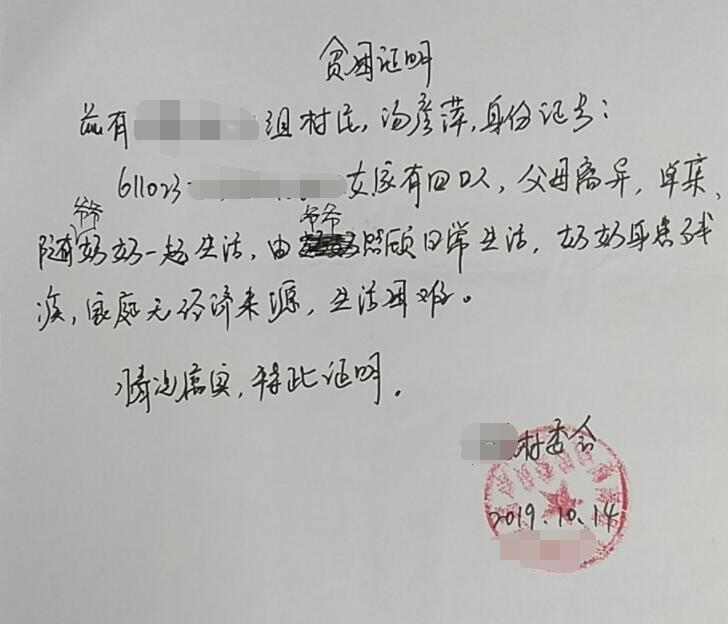 贫困证明
兹有 组村民,汤彦萍,身份证号:
611023 女家有四口人,父母离异,单亲,
随爷爷奶奶一起生活,由爷爷照顾日常生活,奶奶身患残
疾,家庭无经济来源,生活困难。
情况属实,特此证明。
村委会
2019.10.14